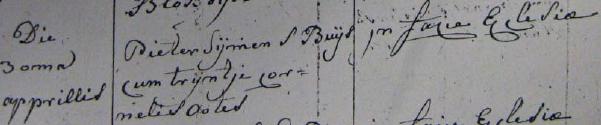 Die
30ma
apprillis
Pieter Sijmen S Buijs
cum trijntje cor=
nelis ootes
jn facie Eclesiæ
facie Eclesiæ